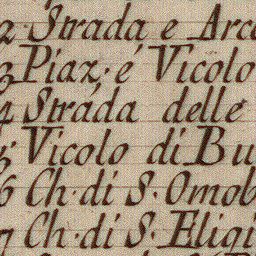 2 Strada e Arce
3 Piaz. e Vicolo
4 Strada delle
5 Vicolo di Bu
6 Ch. di S. Omob
7 Ch. di S. Eligi